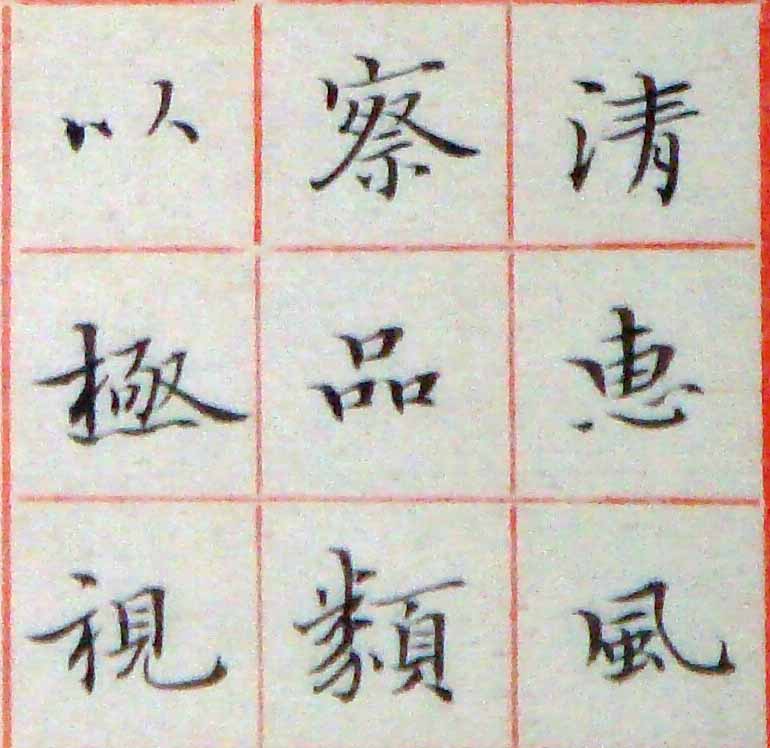 清惠風
察品類
以極視